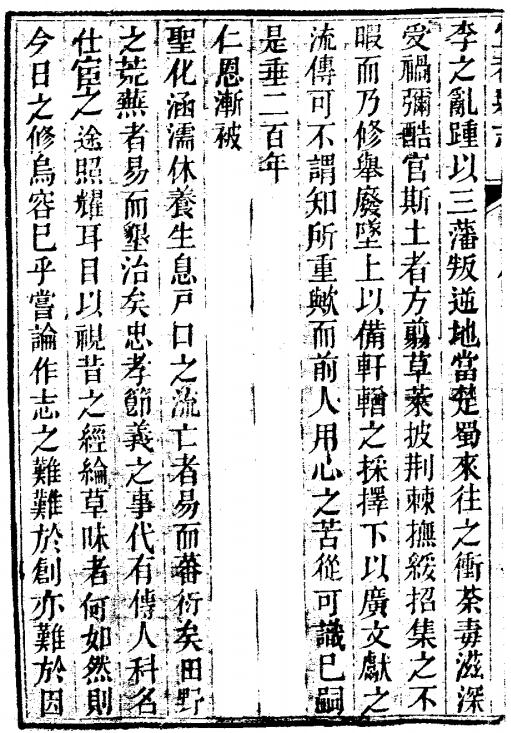 李之亂踵以三藩叛逆地當楚蜀來往之衝荼毒滋深
受禍彌酷官斯土者方翦草萊披荆棘撫綏招集之不
暇而乃修舉廢墜上以備軒輶之採擇下以廣文獻之
流傳可不謂知所重歟而前人用心之苦從可識已嗣
是垂二百年
仁恩漸被
聖化涵濡休養生息戸口之流亡者易而蕃衍矣田野
之荒蕪者易而墾治矣忠孝節義之事代有傳人科名
仕宦之途照耀耳目以視昔之經綸草昧者何如然則
今日之修烏容已乎嘗論作志之難難於創亦難於因